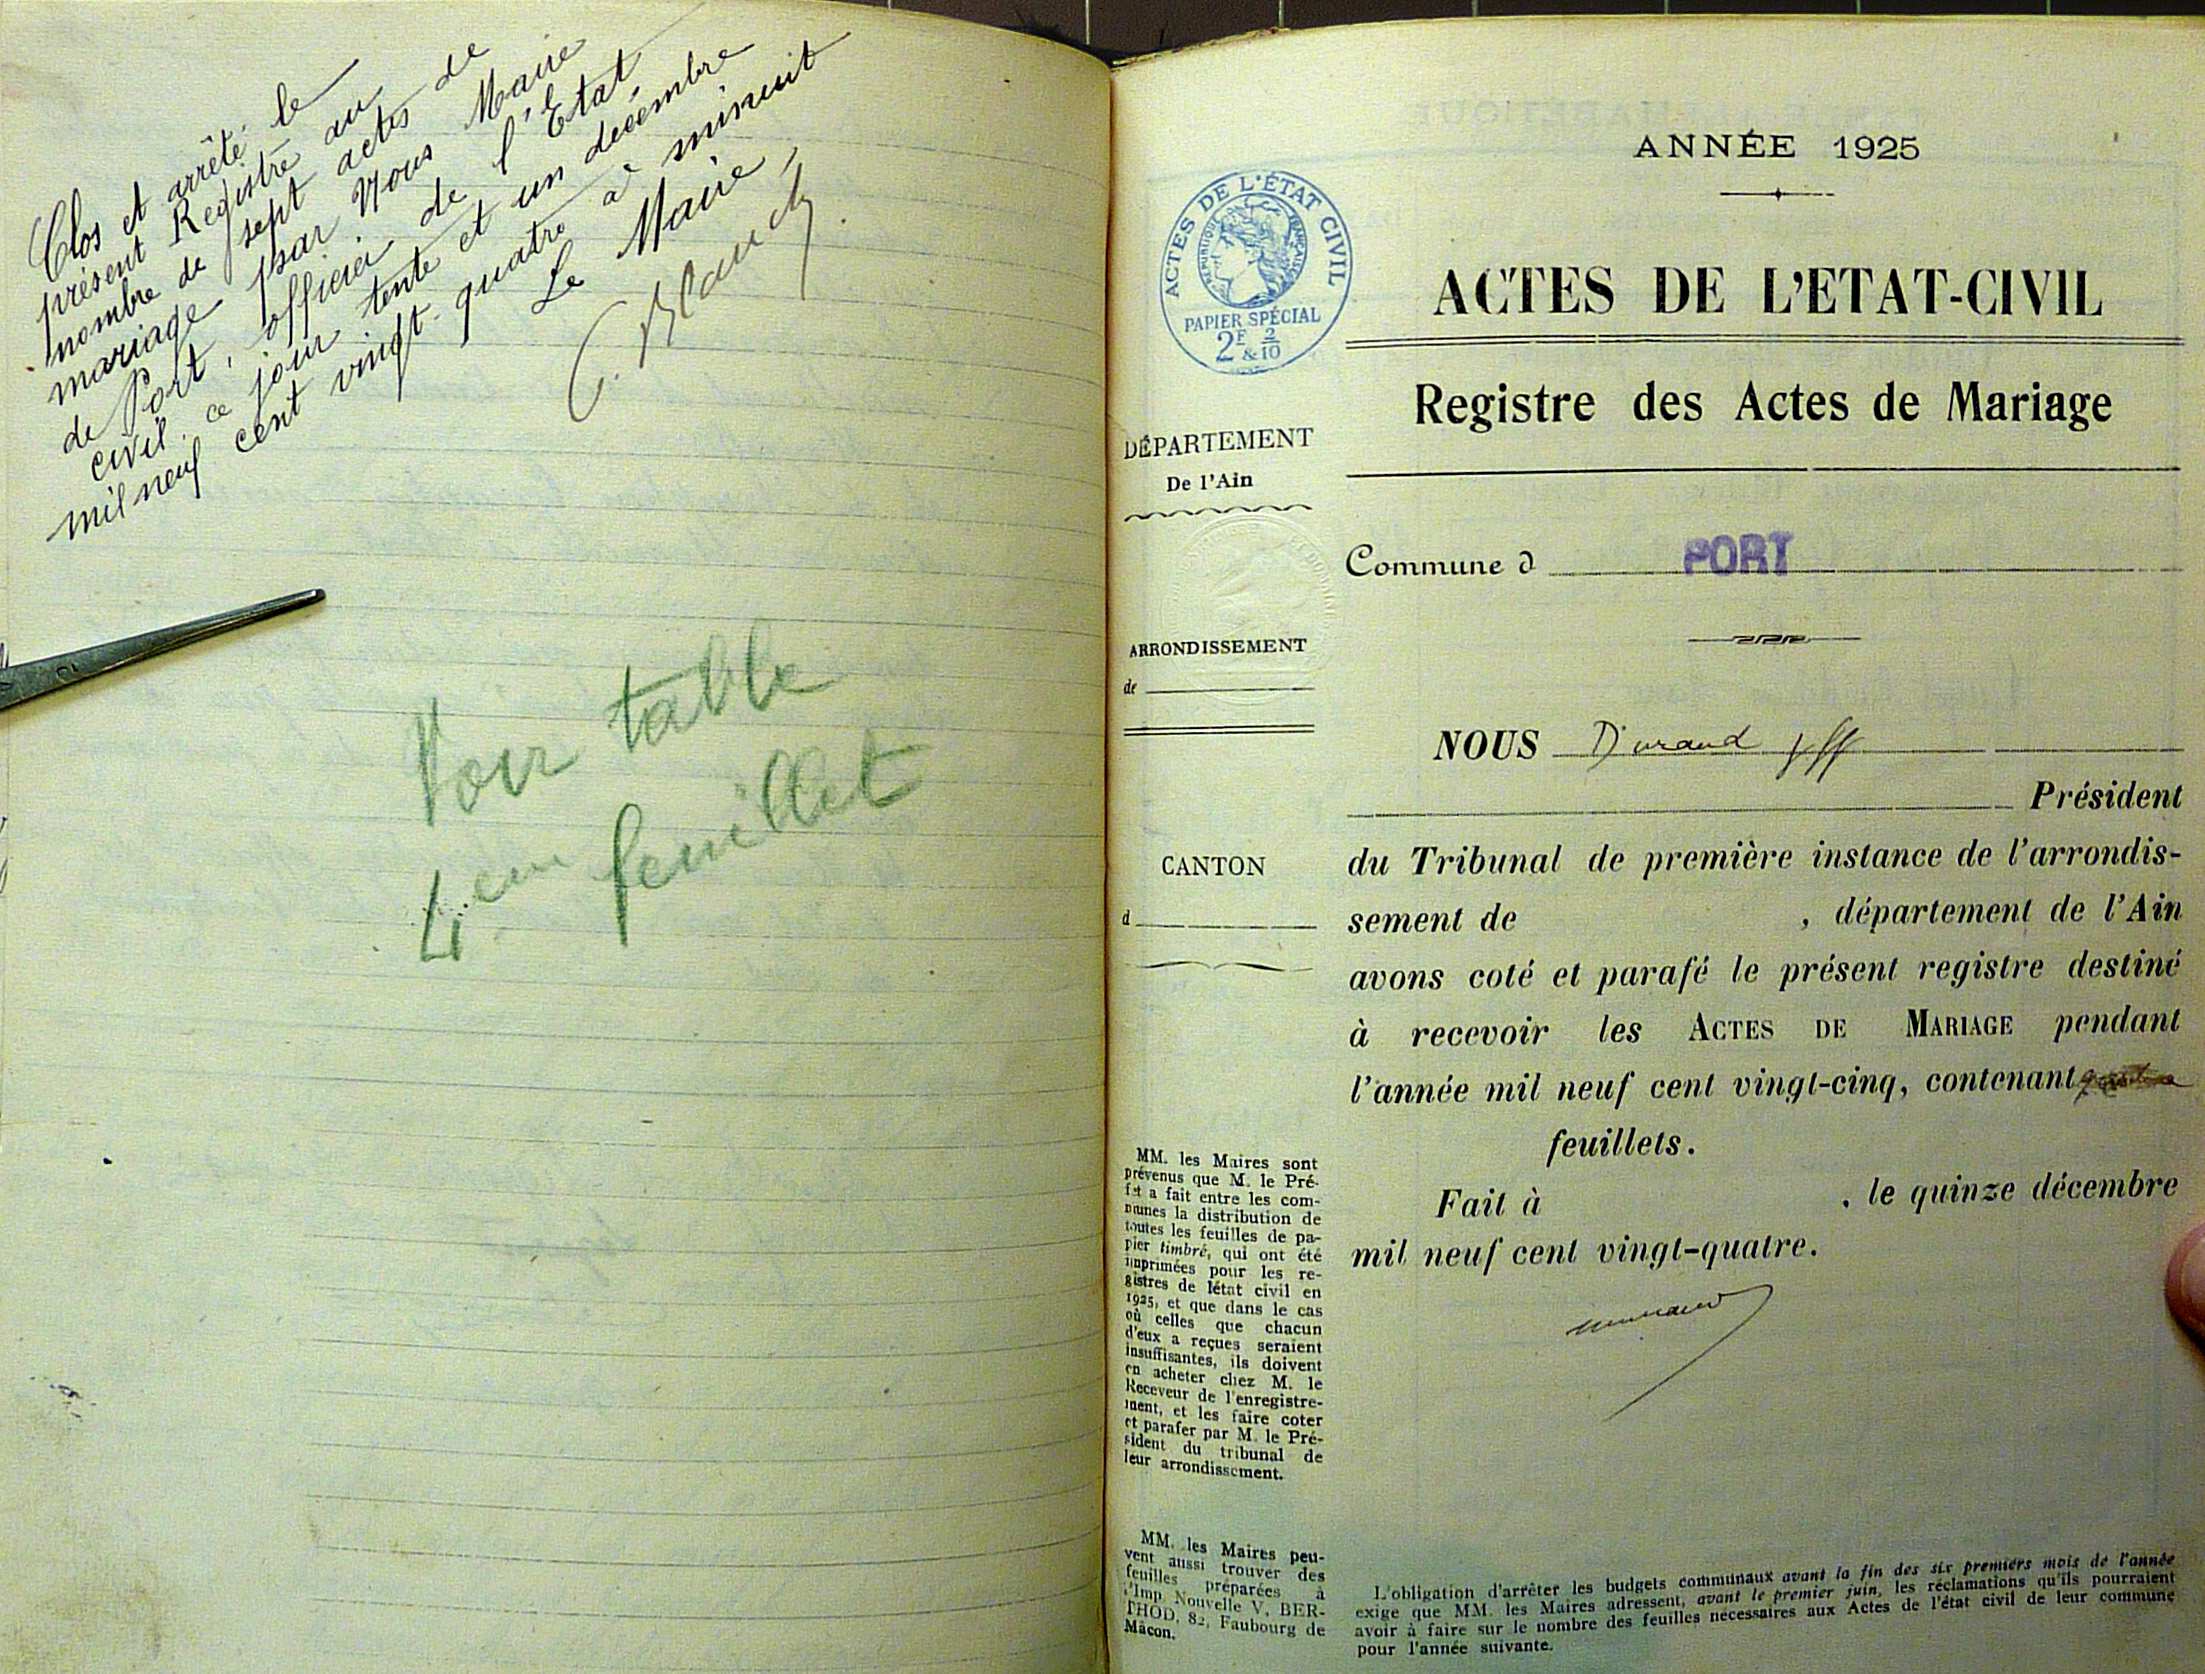 Clos et arrêté le
présent Registre au
nombre de sept actes de
mariage par Nous Maire
de Port, officier de l'Etat
civil, ce jour tente et un décembre
mil neuf cent vingt-quatre à minuit
Le Maire,
C. Blanch
Voir table
4em feuillet
ANNÉE 1925
ACTES DE L'ÉTAT CIVIL
RÉPUBLIQUE FRANÇAISE
PAPIER SPÉCIAL
2F & 2/10
ACTES DE L'ETAT-CIVIL
Registre des Actes de Mariage
DÉPARTEMENT
De l'Ain
Commune d PORT
ARRONDISSEMENT
de
CANTON
d
NOUS Durand
Président
du Tribunal de première instance de l'arrondis-
sement de , département de l'Ain
avons coté et parafé le présent registre destiné
à recevoir les ACTES DE MARIAGE pendant
l'année mil neuf cent vingt-cinq, contenant
feuillets.
Fait à , le quinze décembre
mil neuf cent vingt-quatre.
MM. les Maires sont
prévenus que M. le Pré-
fet a fait entre les com-
munes la distribution de
toutes les feuilles de pa-
pier timbré, qui ont été
imprimées pour les re-
gistres de létat civil en
1925, et que dans le cas
où celles que chacun
d'eux a reçues seraient
insuffisantes, ils doivent
en acheter chez M. le
Receveur de l'enregistre-
ment, et les faire coter
et parafer par M. le Pré-
sident du tribunal de
leur arrondissement.
MM. les Maires peu-
vent aussi trouver des
feuilles préparées à
l'Imp. Nouvelle V. BER-
THOD, 82, Faubourg de
Mâcon.
L'obligation d'arrêter les budgets communaux avant la fin des six premiers mois de l'année
exige que MM. les Maires adressent, avant le premier juin, les réclamations qu'ils pourraient
avoir à faire sur le nombre des feuilles nécessaires aux Actes de l'état civil de leur commune
pour l'année suivante.